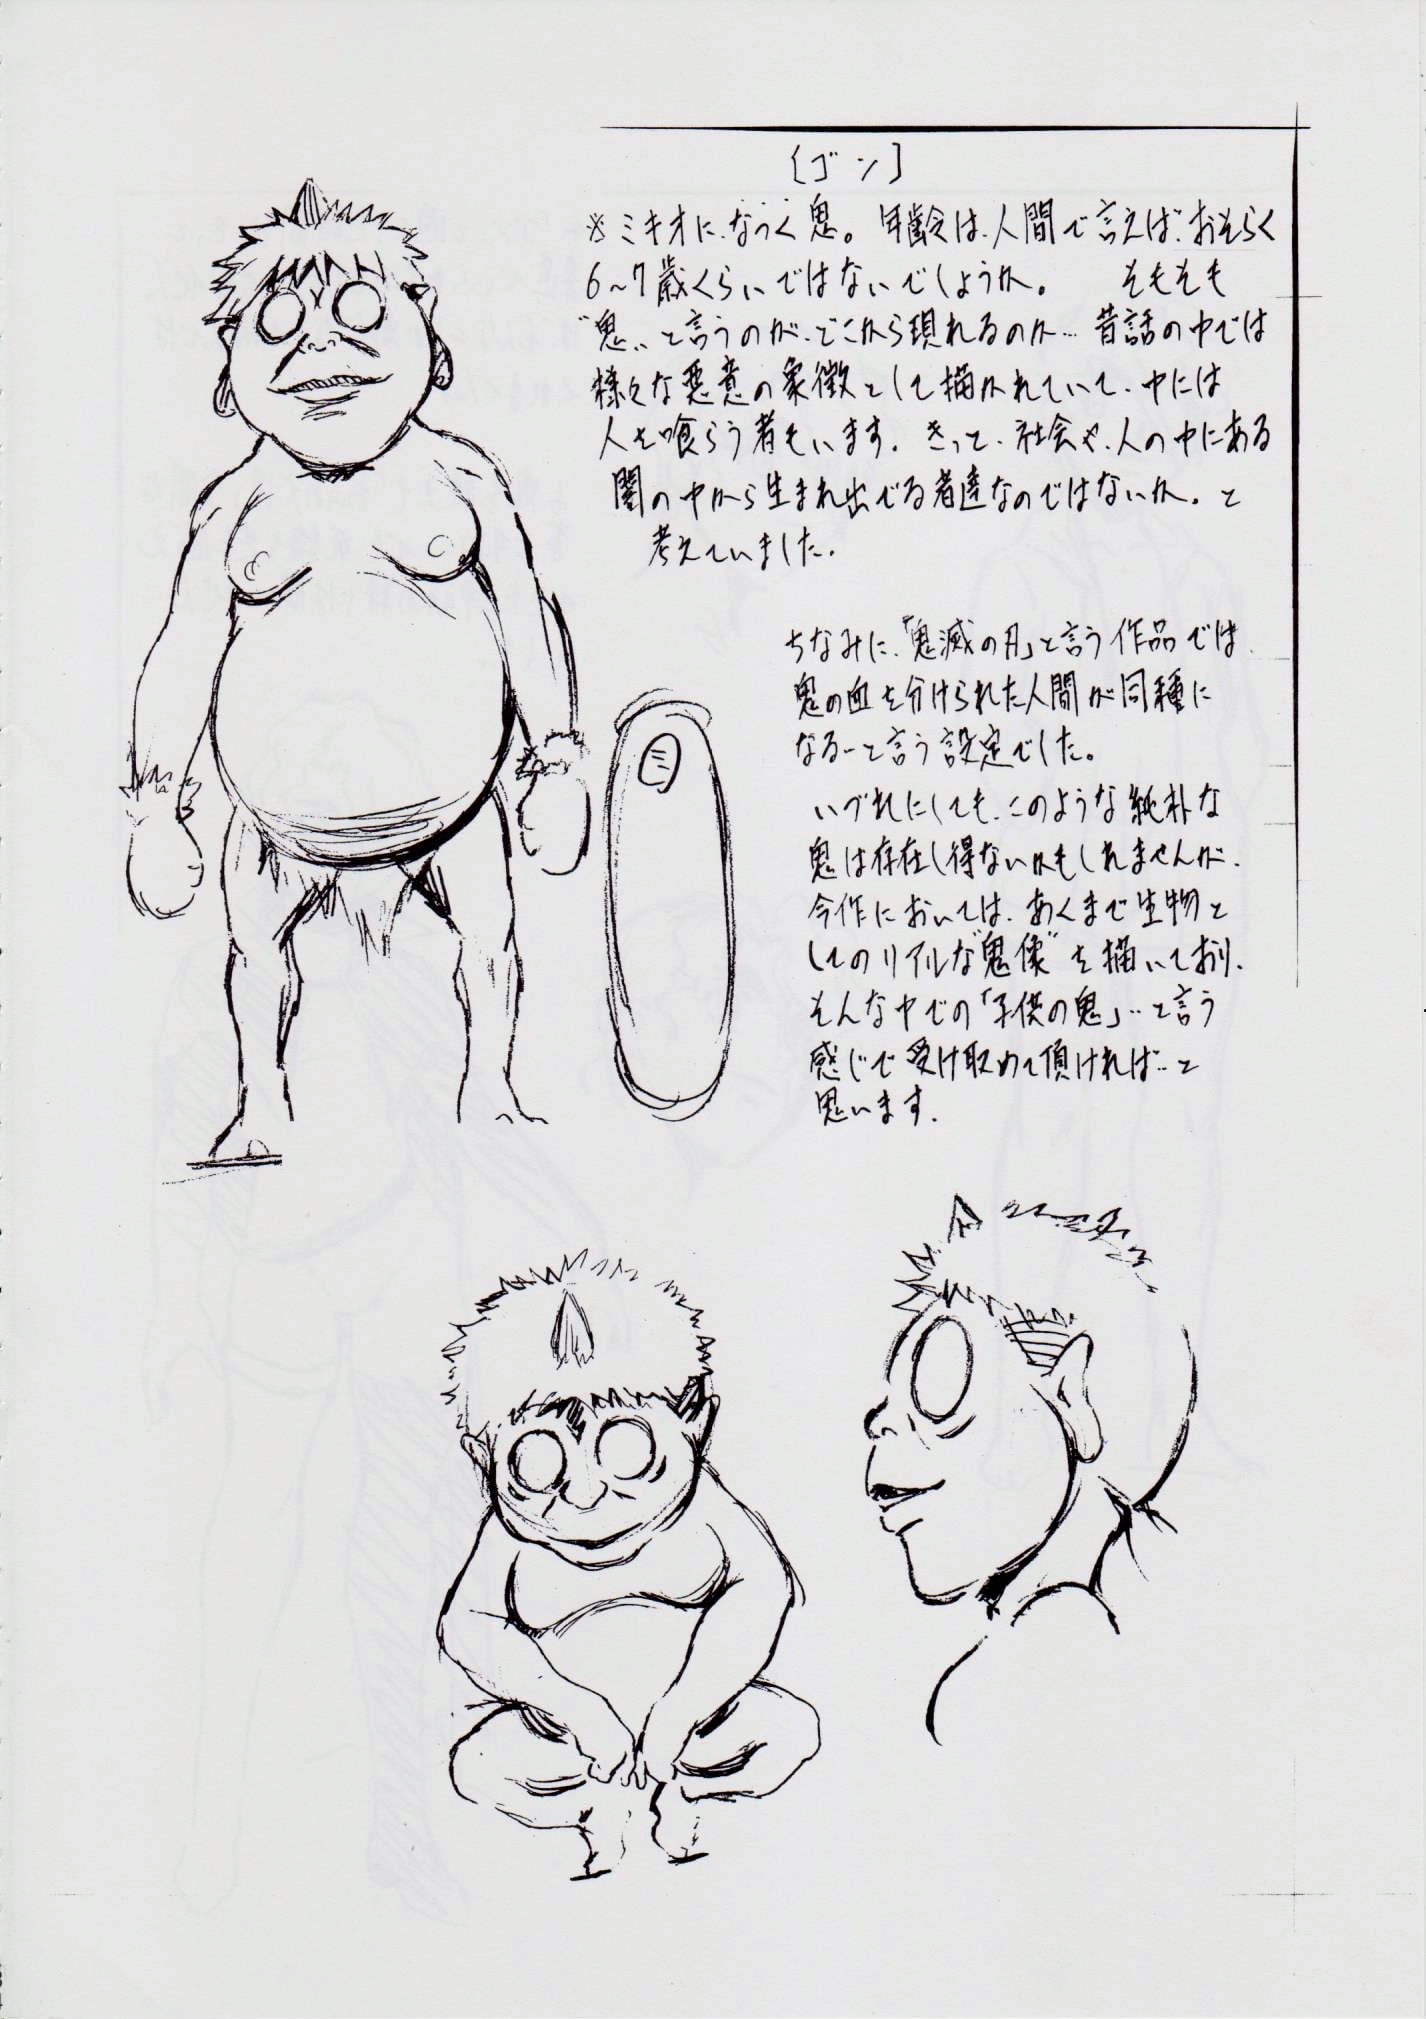 〔ゴン〕
※ミキオに、なつく鬼。年齢は、人間で言えば、おそらく
6〜7歳くらいではないでしょうか。 そもそも
"鬼"と言うのが、どこから現れるのか… 昔話の中では
様々な悪意の象徴として描かれていて、中には
人を喰らう者もいます。きっと、社会や、人の中にある
闇の中から生まれ出でる者達なのではないか。と
考えていました。
ちなみに、「鬼滅の刃」と言う作品では、
鬼の血を分けられた人間が同種に
なる…と言う設定でした。
いづれにしても、このような純朴な
鬼は存在し得ないかもしれませんが、
今作においては、あくまで生物と
してのリアルな"鬼像"を描いており、
そんな中での「子供の鬼」…と言う
感じで受け取めて頂ければ…と
思います。